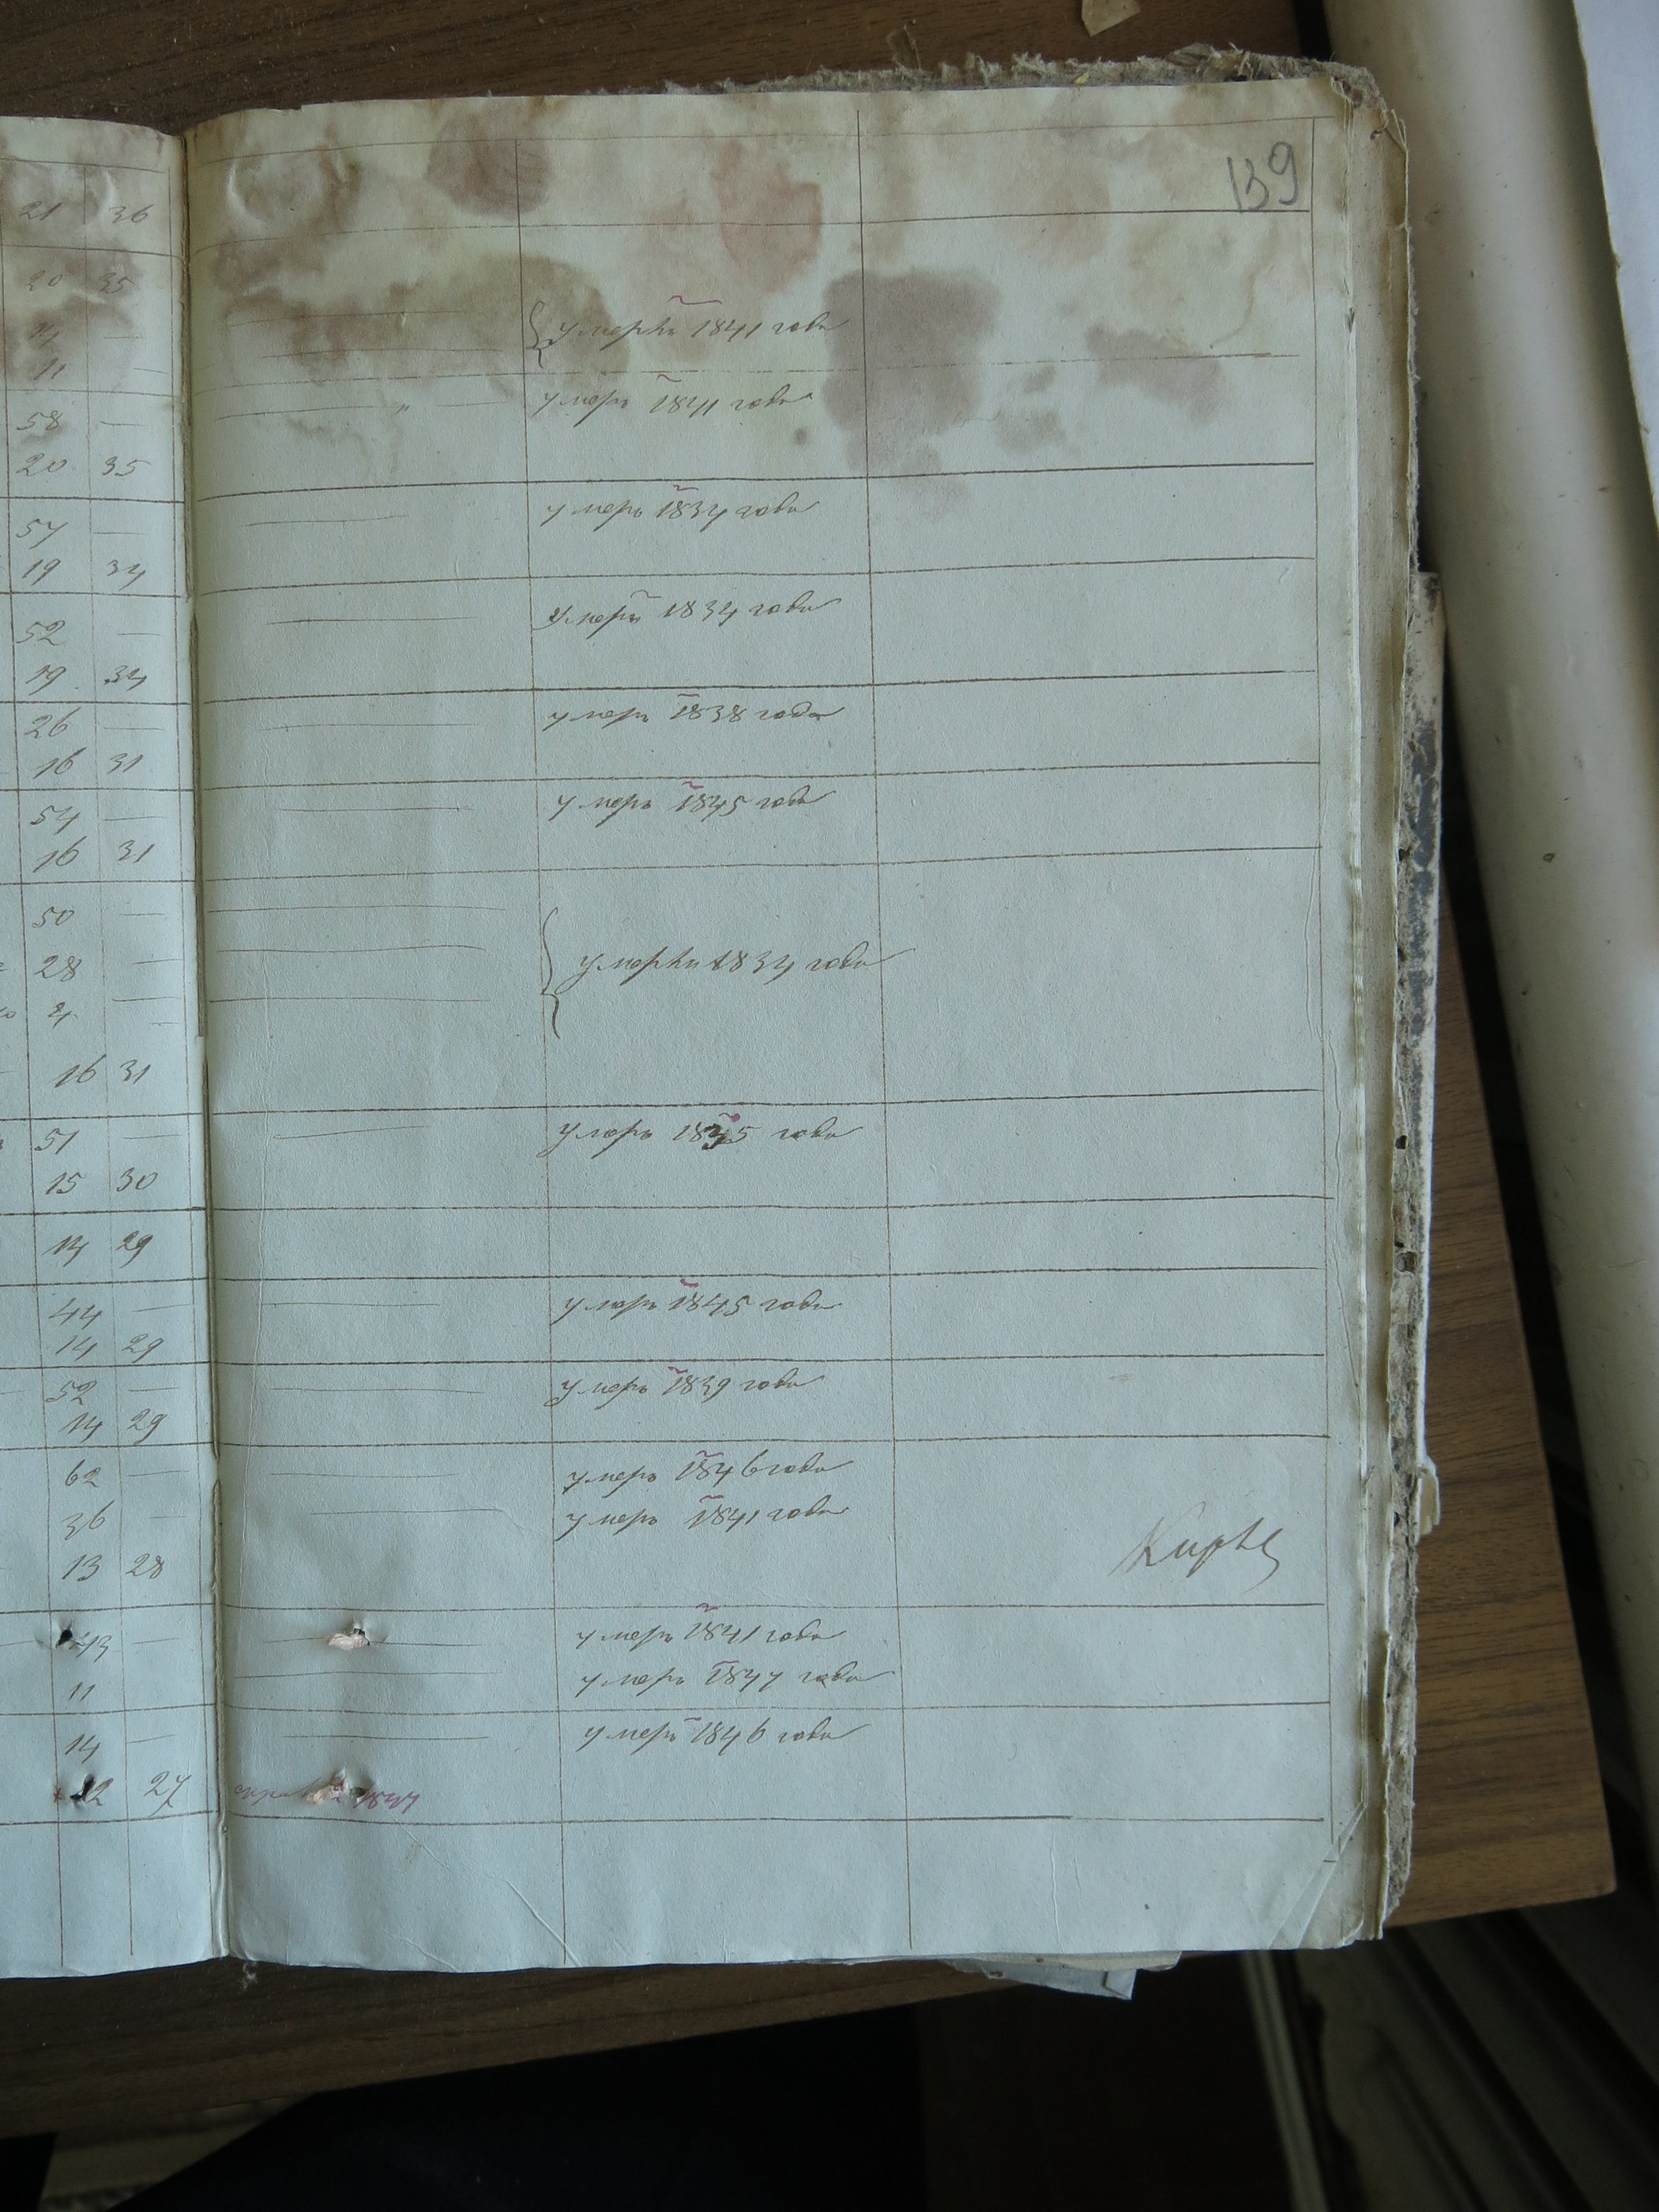 139
21 36
20 35
14 —
11 —
умерли 1841 года
58 — умеръ 1841 года
20 35
57 — умеръ 1837 года
19 34
52 — умеръ 1834 года
19 34
26 — умеръ 1838 года
16 31
54 — умеръ 1845 года
16 31
50 —
28 — умерли 1834 года
4 —
16 31
51 — умеръ 1835 года
15 30
14 29
44 — умеръ 1845 года
14 29
52 — умеръ 1839 года
14 29
62 — умеръ 1846 года
36 — умеръ 1841 года
13 28
43 — умеръ 1841 года
11 умеръ 1847 года
14 — умеръ 1846 года
12 27